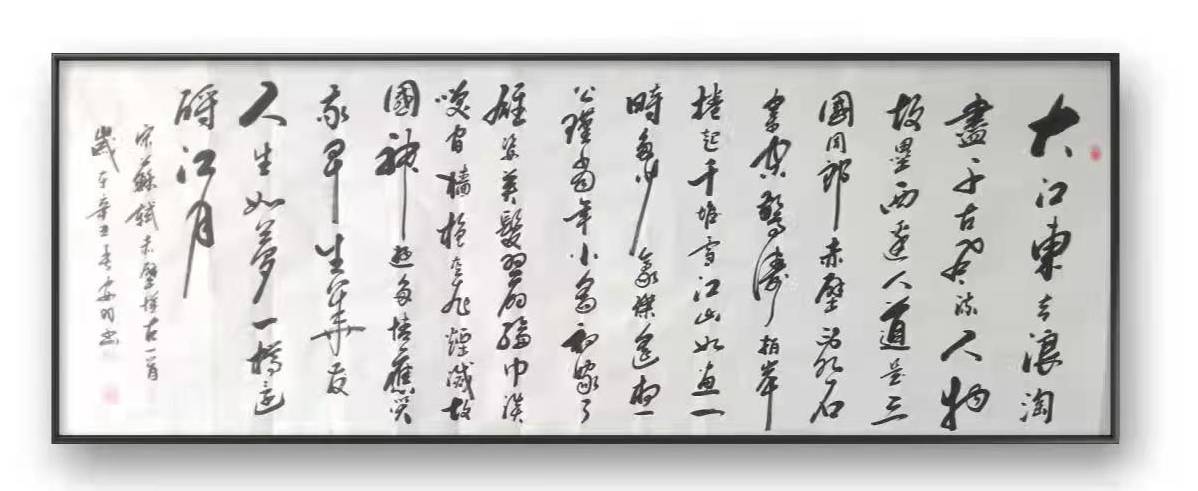 大江東去浪淘
盡千古風流人物
故壘西邊人道是三
國周郎赤壁乱石
穿空驚濤拍岸
捲起千堆雪江山如畫一
時多少豪傑遙想
公瑾當年小喬初嫁了
雄姿英發羽扇綸巾談
笑間檣櫓灰飛煙滅故
國神遊多情應笑
我早生華发
人生如夢一樽還
酹江月
宋蘇軾赤壁懷古一首
歲在辛丑春書